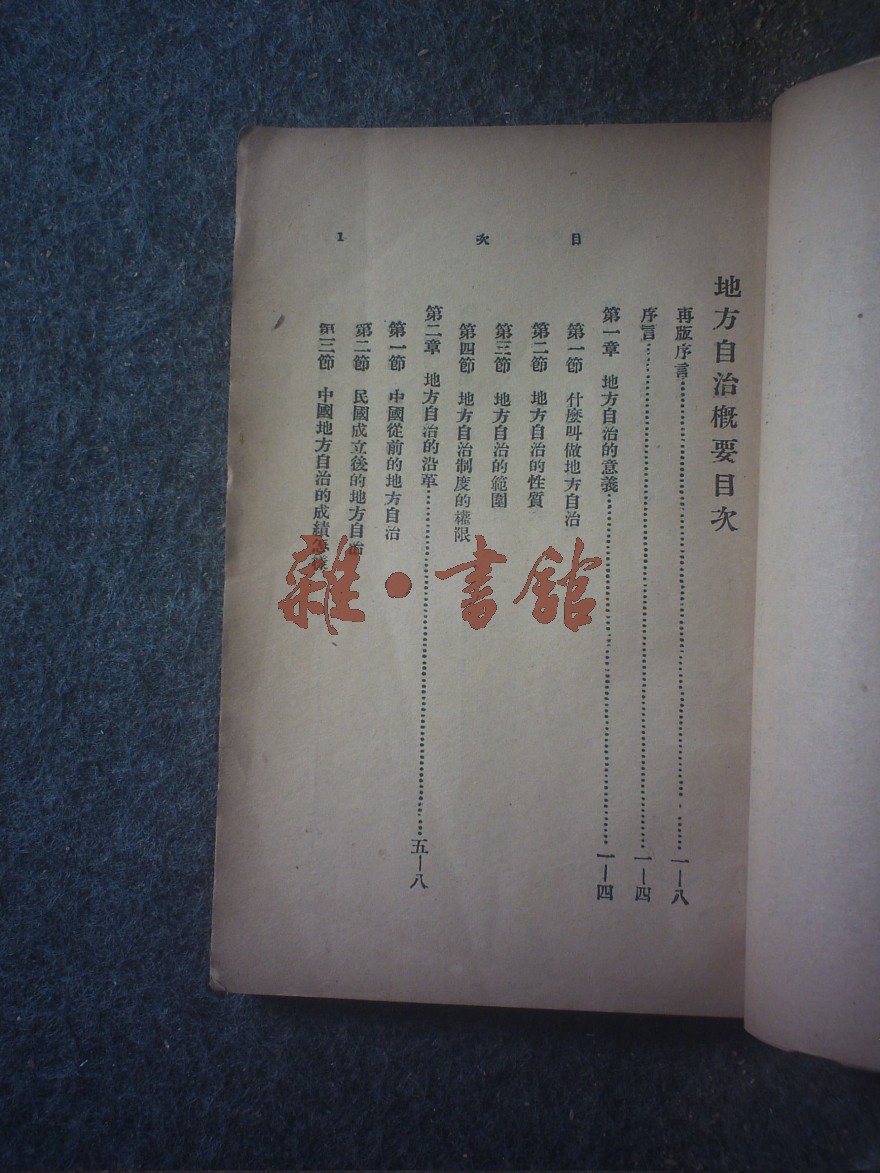 目次
1
地方自治概要目次
再版序言……一—八
序言……一—四
第一章 地方自治的意義……一—四
第一節 什麼叫做地方自治
第二節 地方自治的性質
第三節 地方自治的範圍
第四節 地方自治制度的權限
第二章 地方自治的沿革……五—八
第一節 中國從前的地方自治
第二節 民國成立後的地方自治
第三節 中國地方自治的成績怎樣
雜·書館